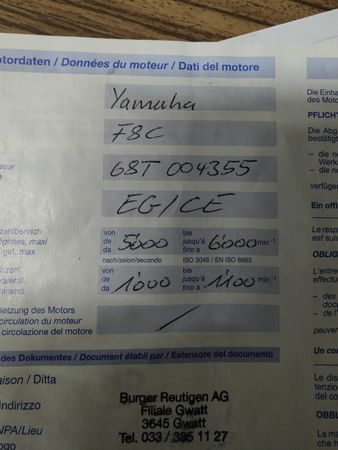 otordaten / Données du moteur / Dati del motore
Yamaha
F8C
68T 004355
EG/CE
von
de 5000
da
bis
jusqu'à 6000 min⁻¹
fino a
nach/selon/secondo ISO 3046 / EN ISO 8665
von
de 1000
da
bis
jusqu'à 1100 min⁻¹
fino a
setzung des Motors
circulation du moteur
circolazione del motore
/
des Dokumentes / Document établi par / Estensore del documento
aison / Ditta
Indirizzo
NPA/Lieu
ogo
Burger Reutigen AG
Filiale Gwatt
3645 Gwatt
Tel. 033 / 335 11 27
Die Einha
des Moto
PFLICHT
Die Abg
bestätigt
– die n
Werk
– die ne
verfüge
Ein offi
Le resp
est suiv
OBLIG
L'entre
effectu
– des
doc
– des
peuver
Un co
Le dis
tien d
tien e
OBBL